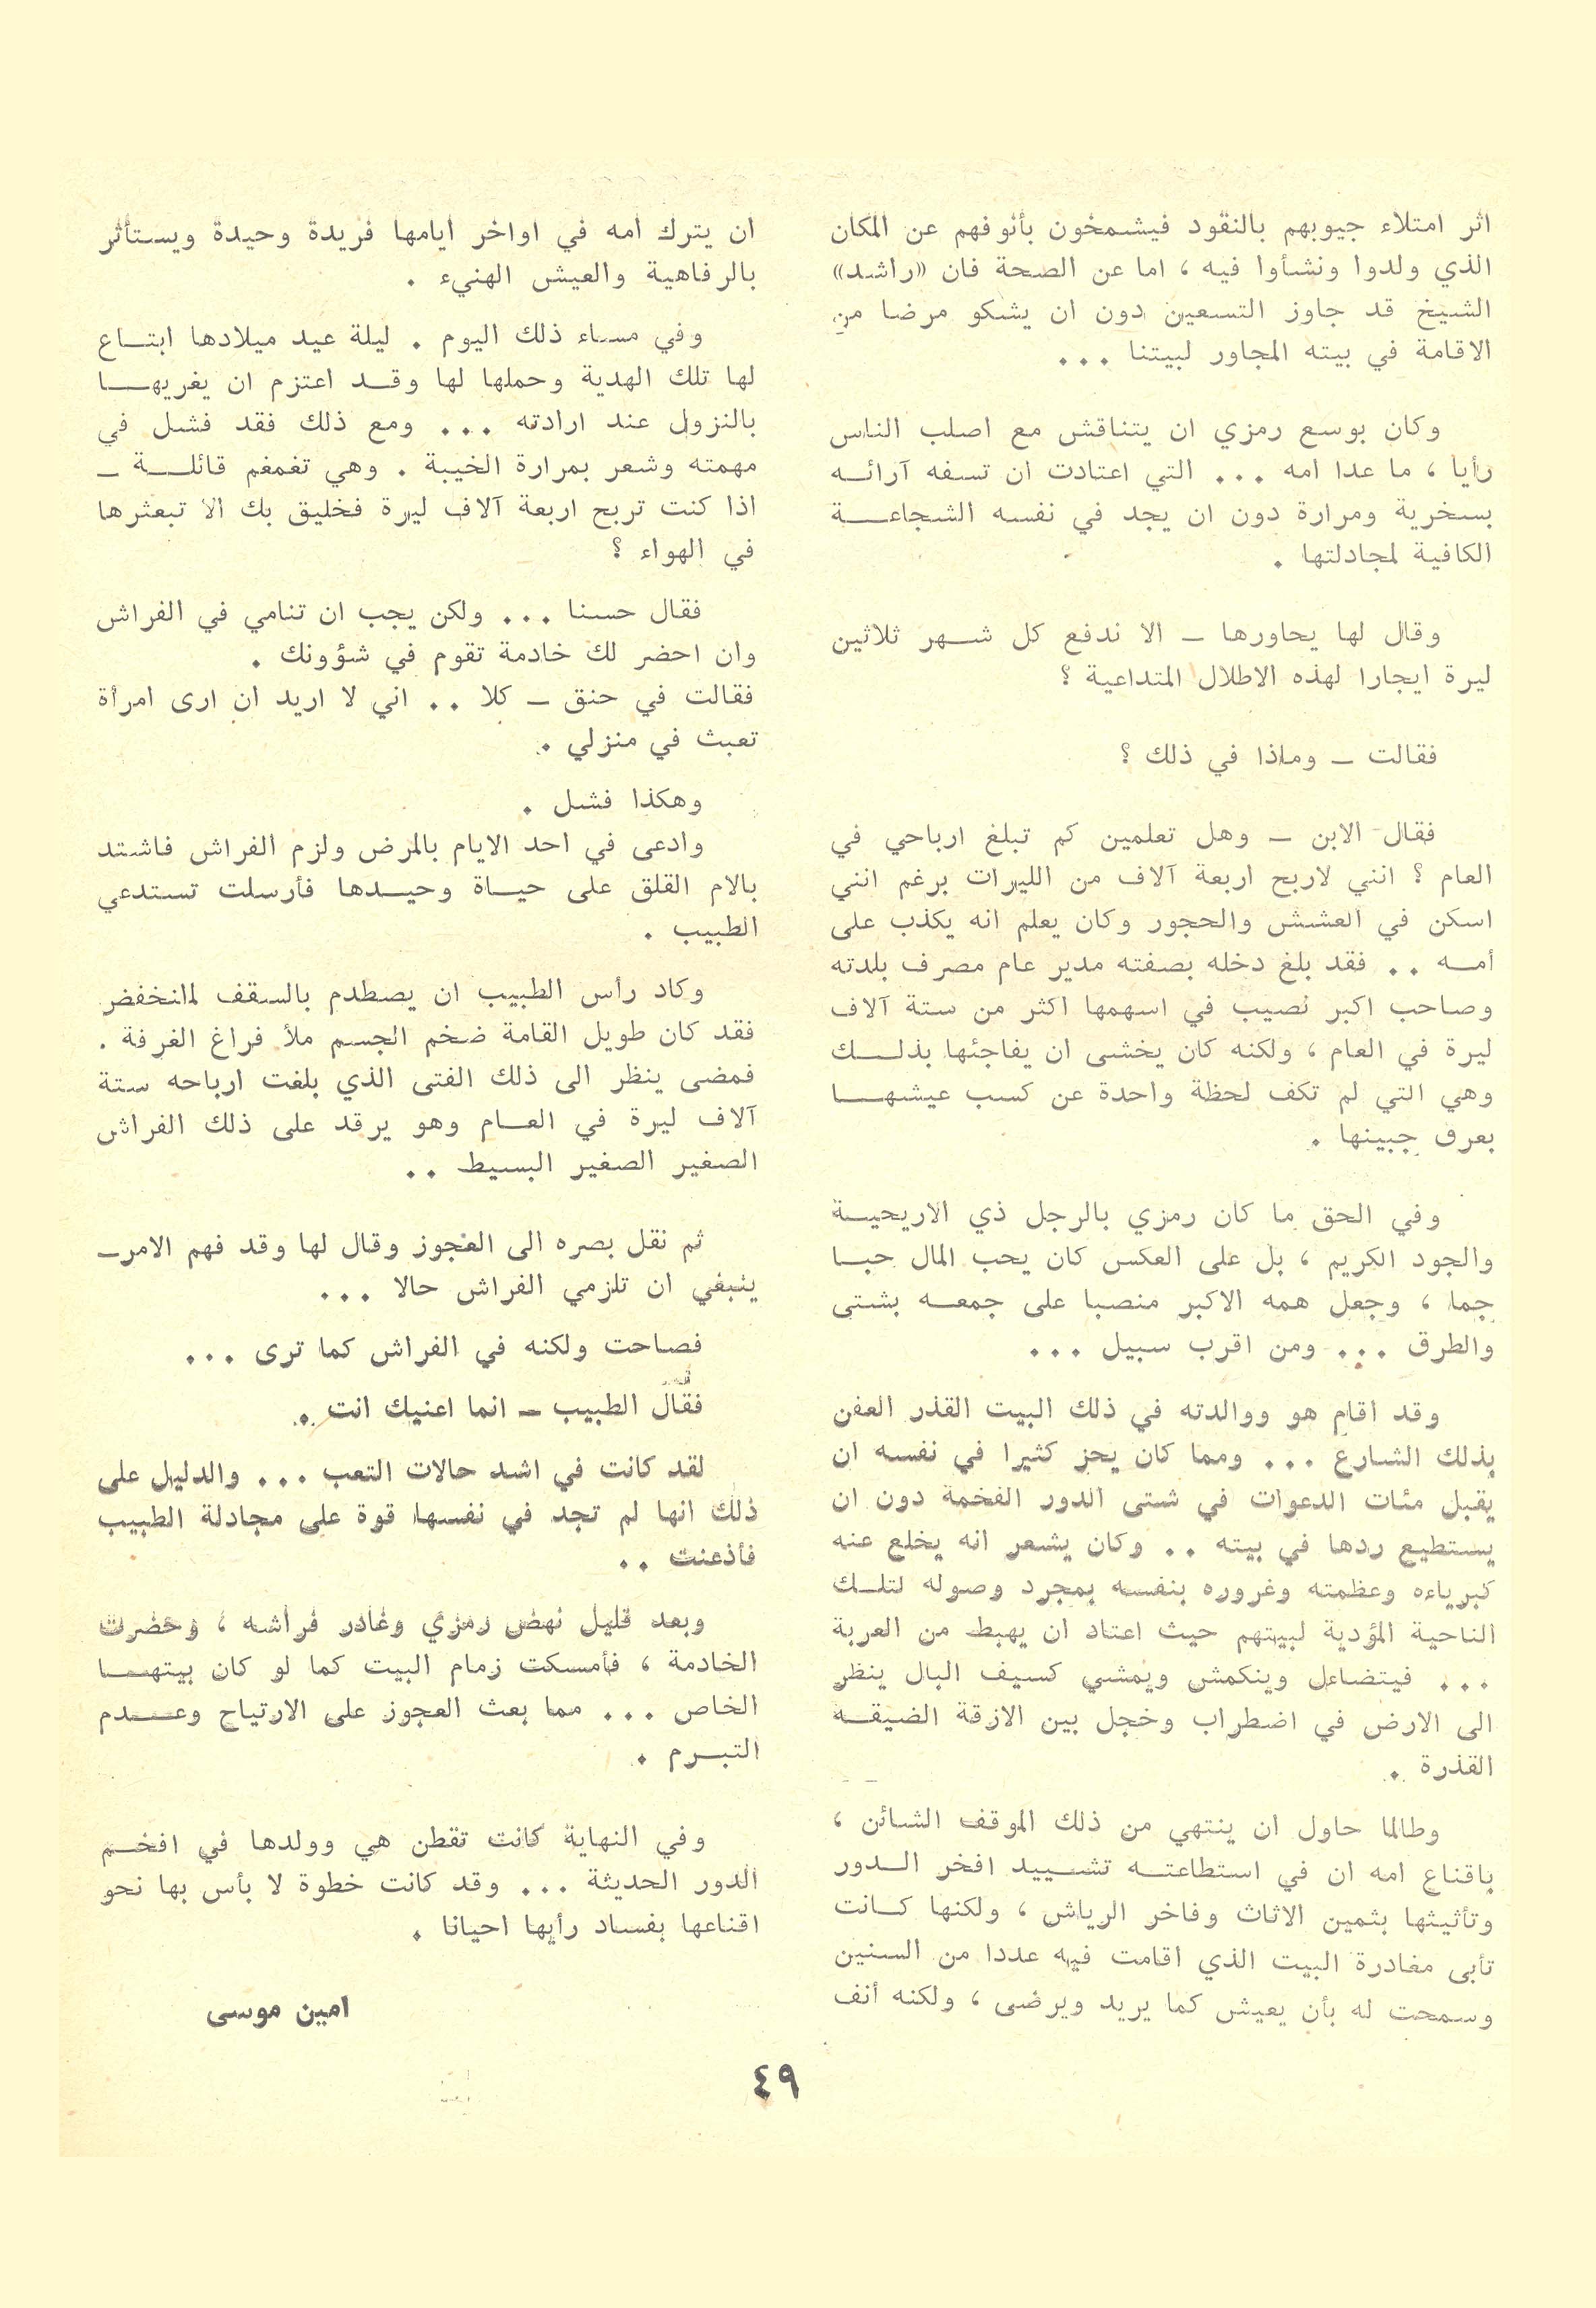 اثر امتلاء جيوبهم بالنقود فيشمخون بأنوفهم عن المكان
الذي ولدوا ونشأوا فيه ، اما عن الصحة فان «راشد»
الشيخ قد جاوز التسعين دون ان يشكو مرضا من
الاقامة في بيته المجاور لبيتنا ...
وكان بوسع رمزي ان يتناقش مع اصلب الناس
رأيا ، ما عدا امه ... التي اعتادت ان تسفه آرائه
بسخرية ومرارة دون ان يجد في نفسه الشجاعة
الكافية لمجادلتها .
وقال لها يحاورها – الا ندفع كل شهر ثلاثين
ليرة ايجارا لهذه الاطلال المتداعية ؟
فقالت – وماذا في ذلك ؟
فقال الابن – وهل تعلمين كم تبلغ ارباحي في
العام ؟ انني لاربح اربعة آلاف من الليرات برغم انني
اسكن في العشش والحجور وكان يعلم انه يكذب على
أمه .. فقد بلغ دخله بصفته مدير عام مصرف بلدته
وصاحب اكبر نصيب في اسهمها اكثر من ستة آلاف
ليرة في العام ، ولكنه كان يخشى ان يفاجئها بذلك
وهي التي لم تكف لحظة واحدة عن كسب عيشها
بعرق جبينها .
وفي الحق ما كان رمزي بالرجل ذي الاريحية
والجود الكريم ، بل على العكس كان يحب المال حبا
جما ، وجعل همه الاكبر منصبا على جمعه بشتى
والطرق ... ومن اقرب سبيل ...
وقد اقام هو ووالدته في ذلك البيت القذر العفن
بذلك الشارع ... ومما كان يحز كثيرا في نفسه ان
يقبل مئات الدعوات في شتى الدور الفخمة دون ان
يستطيع ردها في بيته .. وكان يشعر انه يخلع عنه
كبرياءه وعظمته وغروره بنفسه بمجرد وصوله لتلك
الناحية المؤدية لبيتهم حيث اعتاد ان يهبط من العربة
... فيتضاءل وينكمش ويمشي كسيف البال ينظر
الى الارض في اضطراب وخجل بين الازقة الضيقه
القذرة .
وطالما حاول ان ينتهي من ذلك الموقف الشائن ،
باقناع امه ان في استطاعته تشييد افخر الدور
وتأثيثها بثمين الاثاث وفاخر الرياش ، ولكنها كانت
تأبى مغادرة البيت الذي اقامت فيه عددا من السنين
وسمحت له بأن يعيش كما يريد ويرضى ، ولكنه أنف
ان يترك امه في اواخر ايامها فريدة وحيدة ويستأثر
بالرفاهية والعيش الهنيء .
وفي مساء ذلك اليوم . ليلة عيد ميلادها ابتاع
لها تلك الهدية وحملها لها وقد اعتزم ان يغريها
بالنزول عند ارادته ... ومع ذلك فقد فشل في
مهمته وشعر بمرارة الخيبة . وهي تغمغم قائلة –
اذا كنت تربح اربعة آلاف ليرة فخليق بك الا تبعثرها
في الهواء ؟
فقال حسنا ... ولكن يجب ان تنامي في الفراش
وان احضر لك خادمة تقوم في شؤونك .
فقالت في حنق – كلا .. اني لا اريد ان ارى امرأة
تعبث في منزلي .
وهكذا فشل .
وادعى في احد الايام بالمرض ولزم الفراش فاشتد
بالام القلق على حياة وحيدها فأرسلت تستدعي
الطبيب .
وكاد رأس الطبيب ان يصطدم بالسقف لمانخفض
فقد كان طويل القامة ضخم الجسم ملأ فراغ الغرفة .
فمضى ينظر الى ذلك الفتى الذي بلغت ارباحه ستة
آلاف ليرة في العام وهو يرقد على ذلك الفراش
الصغير الصغير البسيط ..
ثم نقل بصره الى العجوز وقال لها وقد فهم الامر–
ينبغي ان تلزمي الفراش حالا ...
فصاحت ولكنه في الفراش كما ترى ...
فقال الطبيب – انما اعنيك انت .
لقد كانت في اشد حالات التعب ... والدليل على
ذلك انها لم تجد في نفسها قوة على مجادلة الطبيب
فأذعنت ..
وبعد قليل نهض رمزي وغادر فراشه ، وحضرت
الخادمة ، فأمسكت زمام البيت كما لو كان بيتها
الخاص ... مما بعث العجوز على الارتياح وعدم
التبرم .
وفي النهاية كانت تقطن هي وولدها في افخم
الدور الحديثة ... وقد كانت خطوة لا بأس بها نحو
اقناعها بفساد رأيها احيانا .
امين موسى
٤٩